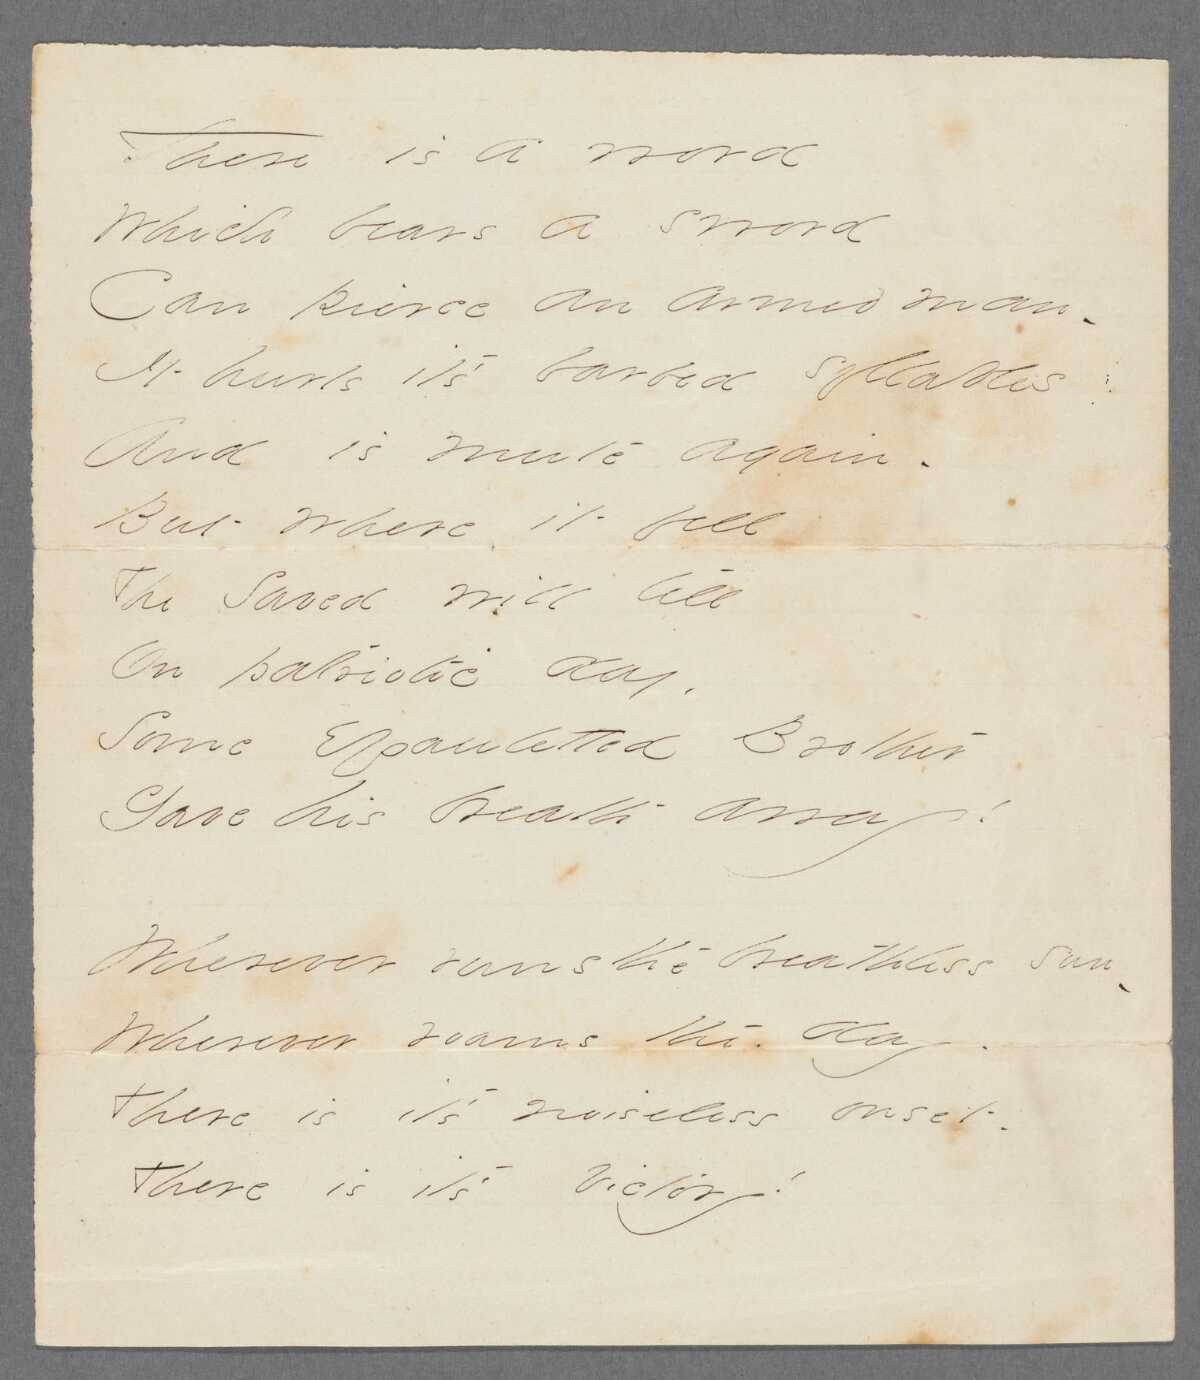 There is a word
Which bears a sword
Can pierce an armed man -
It hurls it's barbed syllables
And is mute again -
But where it fell
The Saved will tell
On patriotic day,
Some Epauletted Brother
Gave his breath away!
Wherever runs the breathless sun -
Wherever roams the day -
There is it's noiseless onset -
There is it's victory!